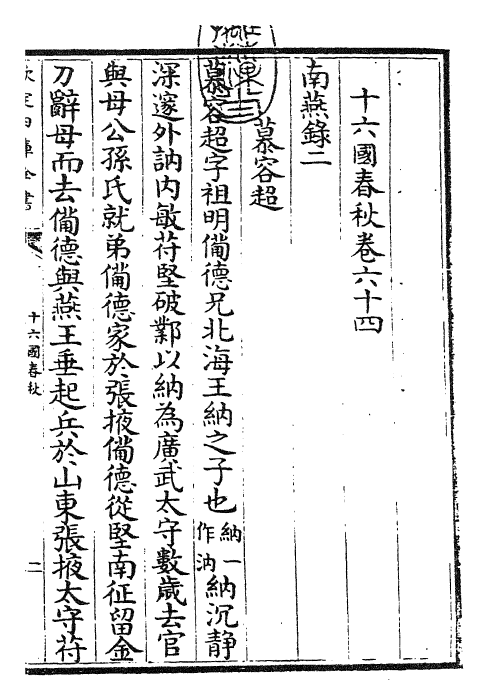 十六國春秋卷六十四
南燕錄二
慕容超
慕容超字祖明僃德兄北海王納之子也納一作汭納沉静
深邃外訥内敏苻堅破鄴以納為廣武太守數歲去官
與母公孫氏就弟僃德家於張掖僃德從堅南征留金
刀辭母而去僃德與燕王垂起兵於山東張掖太守苻
欽定四庫全書
十六國春秋
二